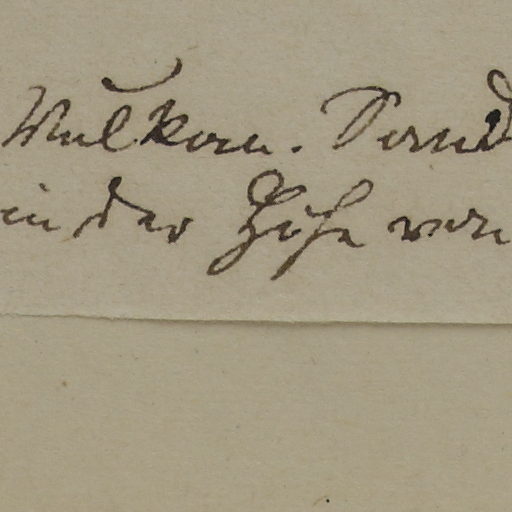 Vulkan. Sand
in der Höhe von